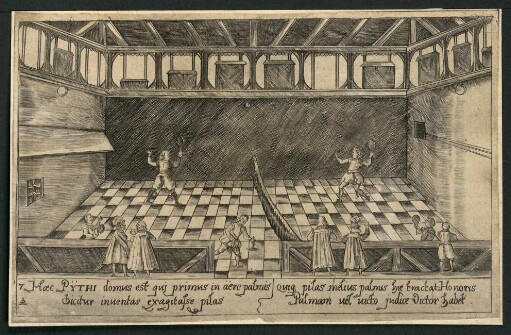 7 Hæc PŸTHI domus est qui primus in aëre palmis
dicitur inventas exagitasse pilas
Quiq pilas melius palmis hic tractat Honoris
Palmam vel victo judice Victor habet